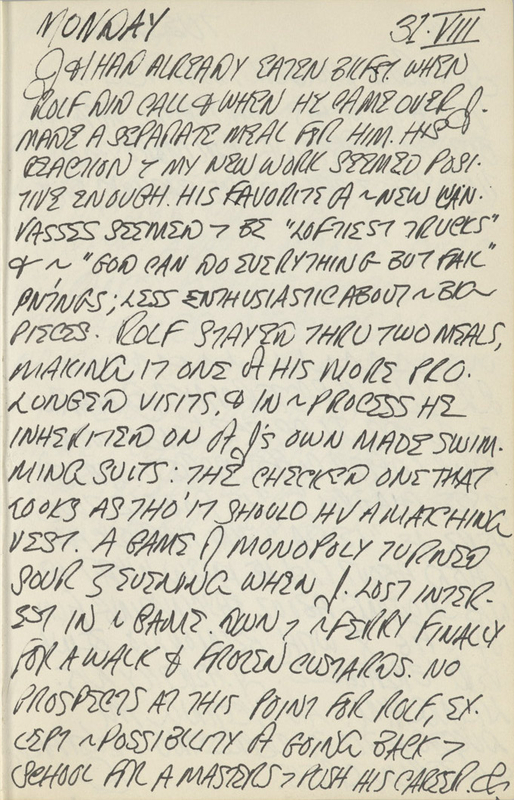 MONDAY 31·VIII
J & I HAD ALREADY EATEN BRKFST. WHEN
ROLF DID CALL & WHEN HE CAME OVER J.
MADE A SEPARATE MEAL FOR HIM. HIS
REACTION > MY NEW WORK SEEMED POSI-
TIVE ENOUGH. HIS FAVORITE OF ~ NEW CAN-
VASSES SEEMED > BE "LOFTIEST TRUCKS"
& ~ "GOD CAN DO EVERYTHING BUT FAIL"
PNT'NGS; LESS ENTHUSIASTIC ABOUT ~ BIG
PIECES. ROLF STAYED THRU TWO MEALS,
MAKING IT ONE OF HIS MORE PRO-
LONGED VISITS, & IN ~ PROCESS HE
INHERITED ON OF J'S OWN MADE SWIM-
MING SUITS: THE CHECKED ONE THAT
LOOKS AS THO' IT SHOULD HV A MATCHING
VEST. A GAME OF MONOPOLY TURNED
SOUR 3 EVENING WHEN J. LOST INTER-
EST IN ~ GAME. DWN > ~ FERRY FINALLY
FOR A WALK & FROZEN CUSTARDS. NO
PROSPECTS AT THIS POINT FOR ROLF, EX-
CEPT ~ POSSIBILITY OF GOING BACK >
SCHOOL FOR A MASTERS > PUSH HIS CAREER.